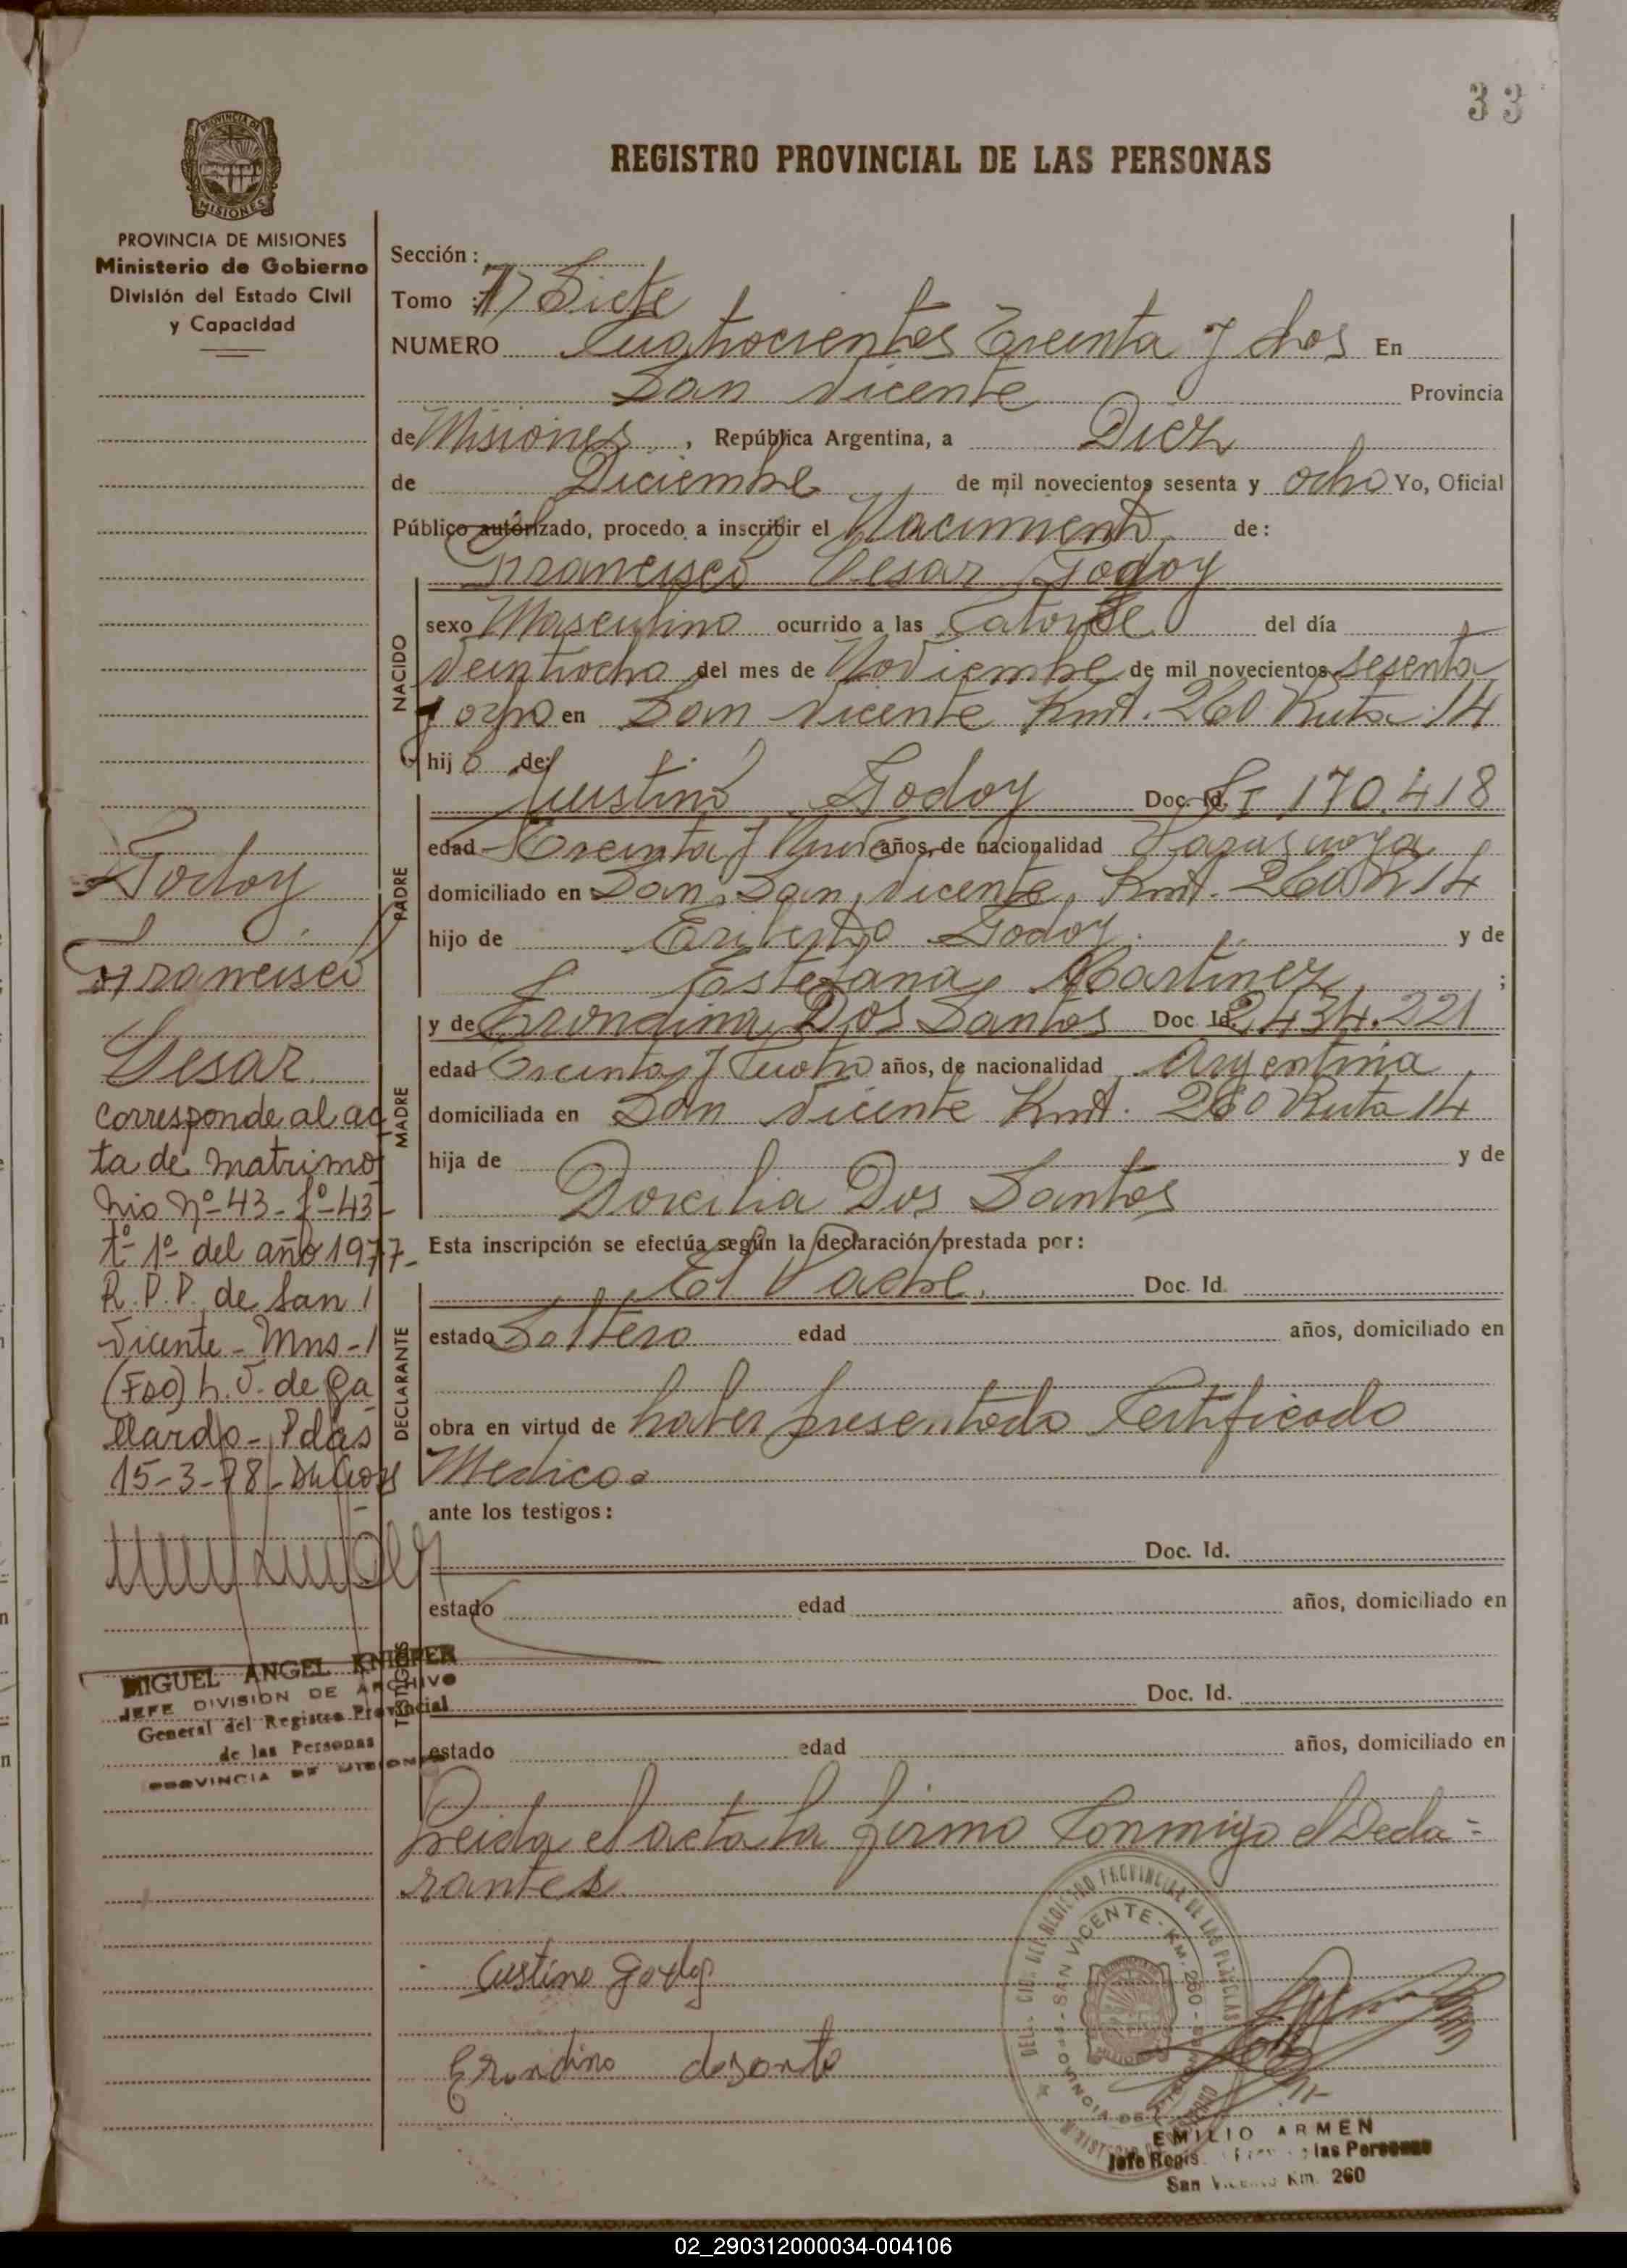 33
REGISTRO PROVINCIAL DE LAS PERSONAS
PROVINCIA DE MISIONES
MISIONES
PROVINCIA DE MISIONES
Ministerio de Gobierno
División del Estado Civil
y Capacidad
Sección :
Tomo : 7) Siete
NUMERO Cuatrocientos Treinta y dos En
San Vicente Provincia
de Misiones , República Argentina, a Diez
de Diciembre de mil novecientos sesenta y ocho Yo, Oficial
Público autorizado, procedo a inscribir el Nacimiento de:
Francisco Cesar Godoy
NACIDO
sexo Masculino ocurrido a las Catorse del día
Veintiocho del mes de Noviembre de mil novecientos sesenta
y ocho en San Vicente Kmt. 260 Ruta 14
hij o de:
PADRE
Justino Godoy Doc. Id. 170.418
edad Treinta y años, de nacionalidad Paraguaya
domiciliado en San, San, Vicente, Kmt. 260 R 14
hijo de Eriberto Godoy y de
Estefana Martinez ;
MADRE
y de Erondina Dos Santos Doc Id. 2,434.221
edad Treinta y Cuatro años, de nacionalidad Argentina
domiciliada en San Vicente Kmt. 260 Ruta 14
hija de y de
Dorcilia Dos Santos
Esta inscripción se efectúa según la declaración prestada por:
DECLARANTE
El Padre. Doc. Id.
estado Soltero edad años, domiciliado en
obra en virtud de haber presentado Certificado
Medico
ante los testigos:
TESTIGOS
Doc. Id.
estado edad años, domiciliado en
Doc. Id.
estado edad años, domiciliado en
Leida el acta la firmo Conmigo el Decla=
rantes
Custino godoy
Erondino dosonto
Godoy
Francisco
Cesar
corresponde al ac
ta de matrimo
nio Nº-43-fº-43-
tº- 1º- del año 1977-
R.P.P. de San
Vicente - Mns -
(Fdo) h. J. de Ga
llardo - Pdas
15-3-78-
MIGUEL ANGEL KNIPPER
JEFE DIVISION DE ARCHIVO
General del Registro Provincial
de las Personas
PROVINCIA DE MISIONES
SAN VICENTE - KM. 260
EMILIO ARMEN
Jefe Regis. las Personas
San Vicente Km. 260
02_290312000034-004106